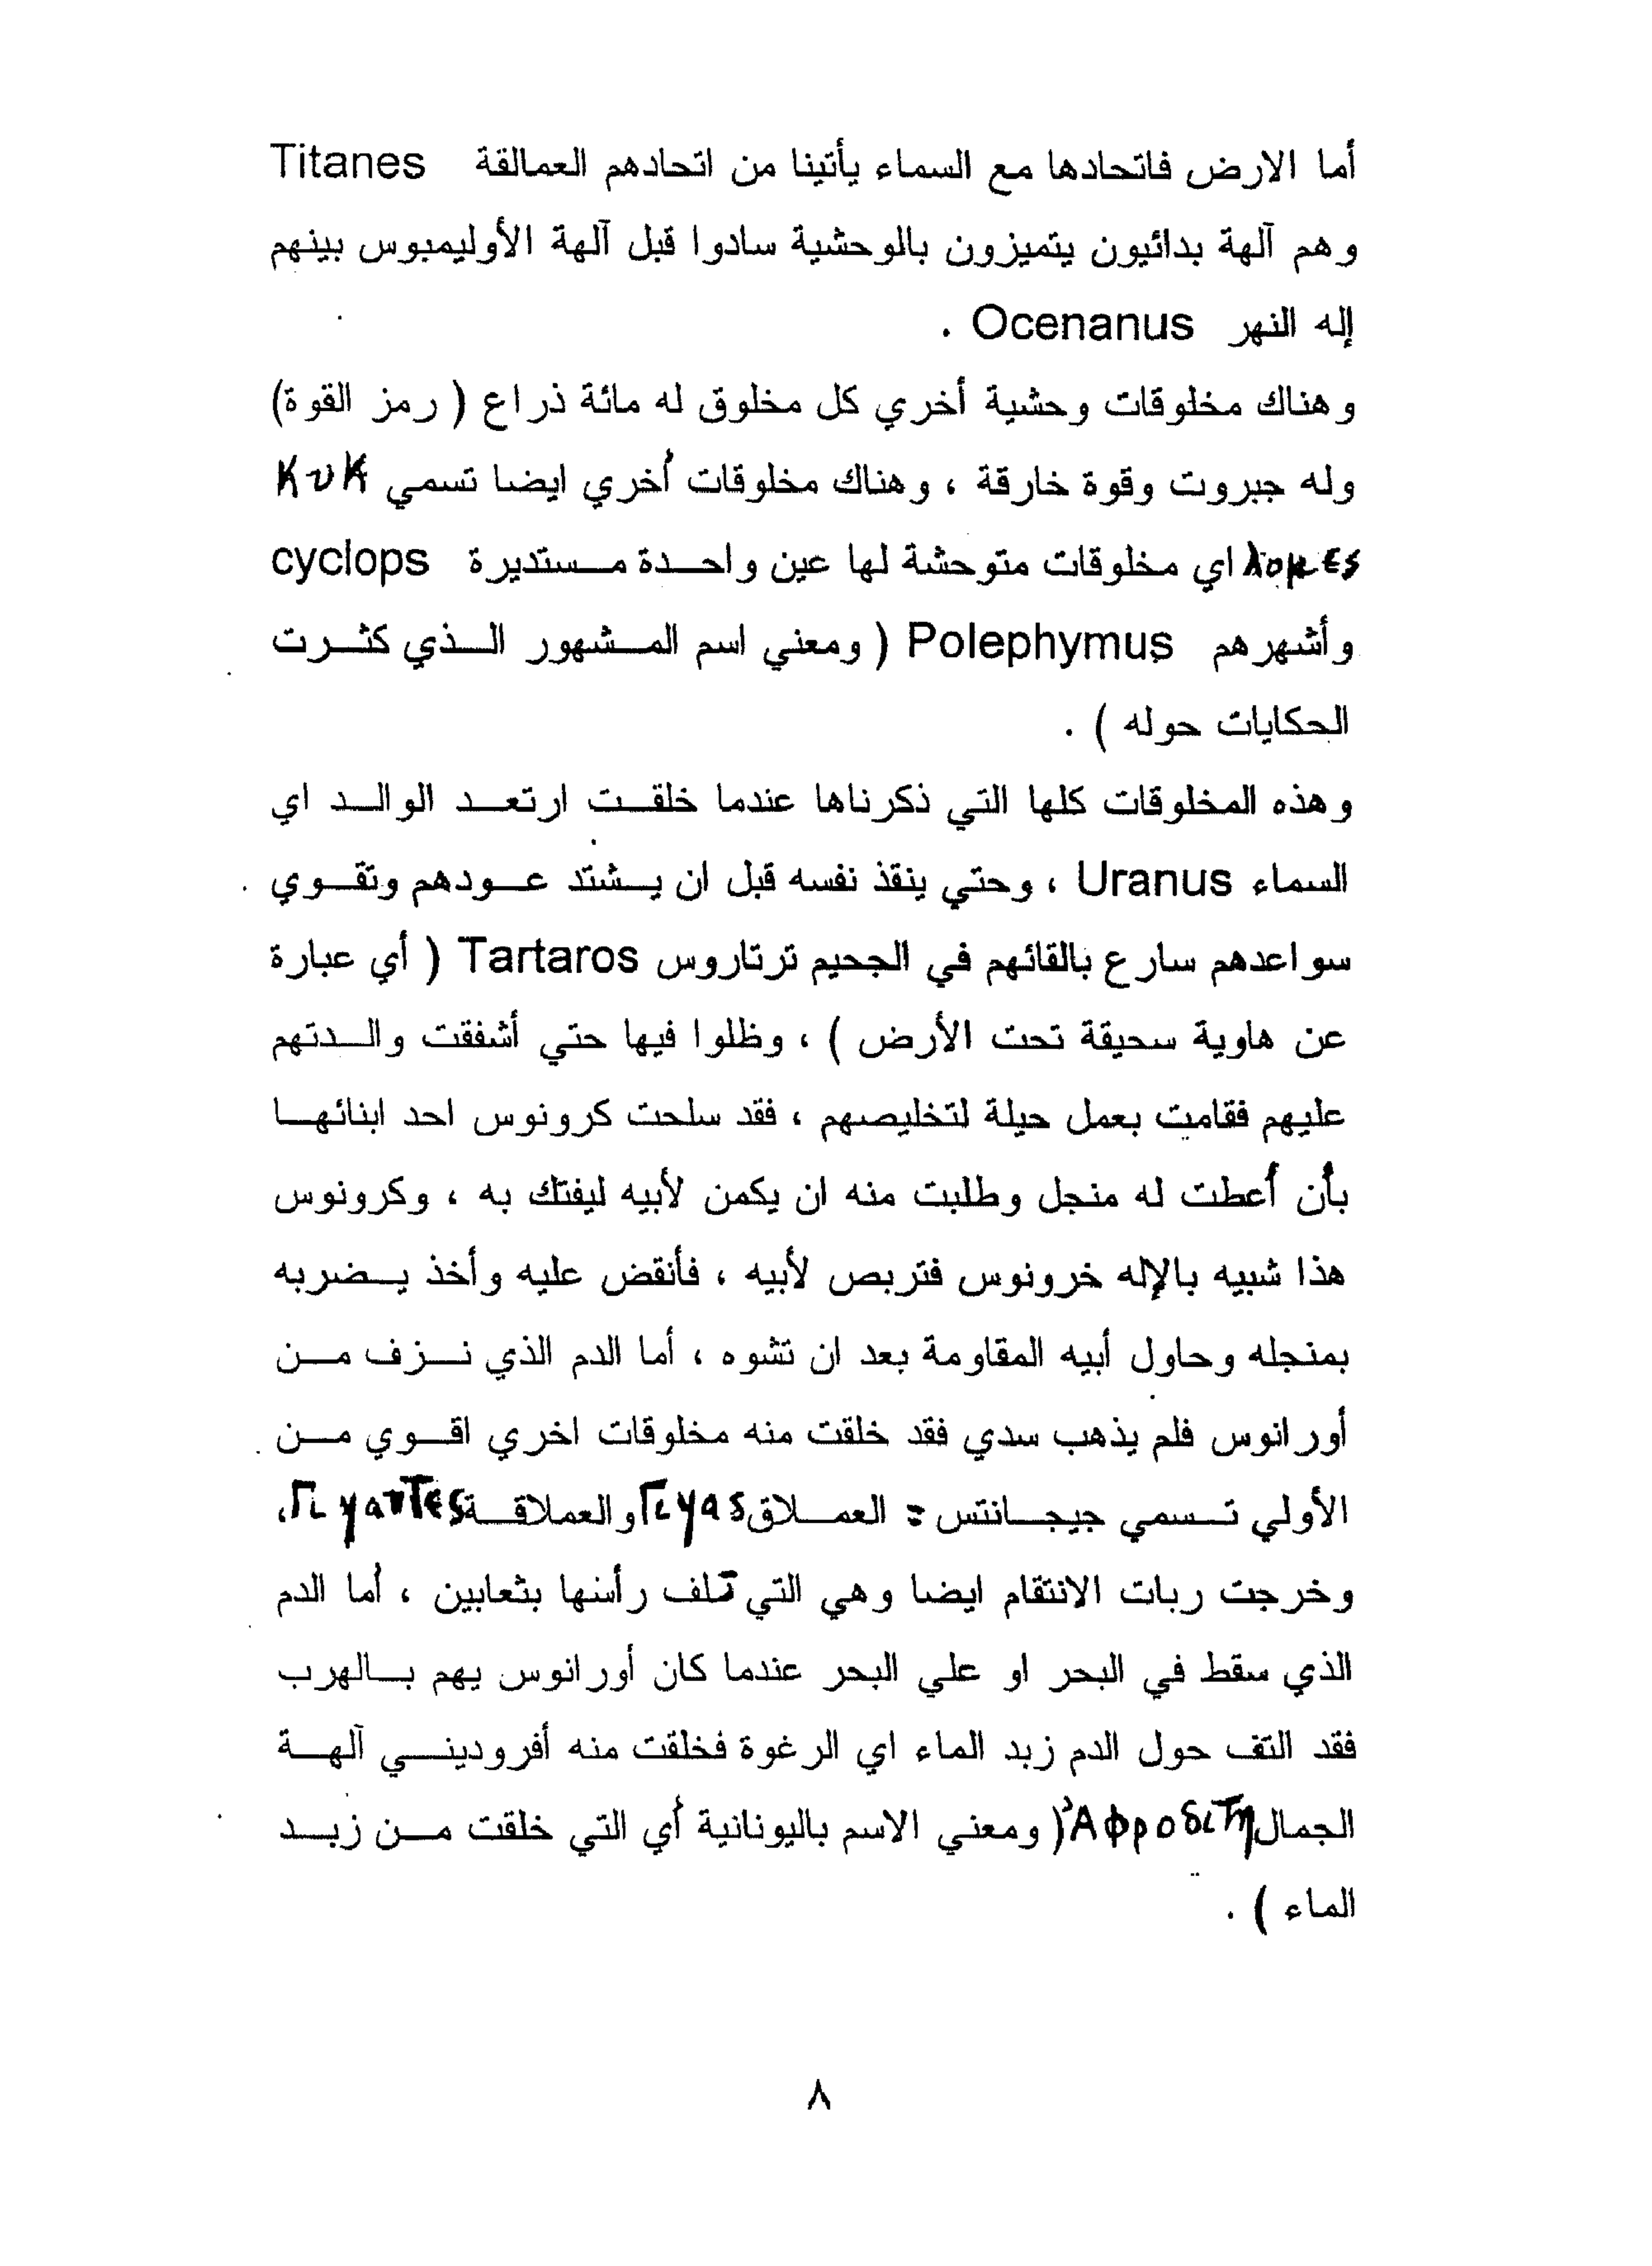 أما الارض فاتحادها مع السماء يأتينا من اتحادهم العمالقة Titanes
وهم آلهة بدائيون يتميزون بالوحشية سادوا قبل آلهة الأوليمبوس بينهم
إله النهر Ocenanus .
وهناك مخلوقات وحشية أخري كل مخلوق له مائة ذراع ( رمز القوة)
وله جبروت وقوة خارقة ، وهناك مخلوقات أخري ايضا تسمي Κυκ
λομες اي مخلوقات متوحشة لها عين واحدة مستديرة cyclops
وأشهرهم Polephymus ( ومعني اسم المشهور الذي كثرت
الحكايات حوله ) .
وهذه المخلوقات كلها التي ذكرناها عندما خلقت ارتعد الوالد اي
السماء Uranus ، وحتي ينقذ نفسه قبل ان يشتد عودهم وتقوي
سواعدهم سارع بالقائهم في الجحيم ترتاروس Tartaros ( أي عبارة
عن هاوية سحيقة تحت الأرض ) ، وظلوا فيها حتي أشفقت والدتهم
عليهم فقامت بعمل حيلة لتخليصهم ، فقد سلحت كرونوس احد ابنائها
بأن أعطت له منجل وطلبت منه ان يكمن لأبيه ليفتك به ، وكرونوس
هذا شبيه بالإله خرونوس فتربص لأبيه ، فأنقض عليه وأخذ يضربه
بمنجله وحاول أبيه المقاومة بعد ان تشوه ، أما الدم الذي نزف من
أورانوس فلم يذهب سدي فقد خلقت منه مخلوقات اخري اقوي من
الأولي تسمي جيجانتس = العملاق Γιγας والعملاقة Γιγαντες،
وخرجت ربات الانتقام ايضا وهي التي تلف رأسها بثعابين ، أما الدم
الذي سقط في البحر او علي البحر عندما كان أورانوس يهم بالهرب
فقد التف حول الدم زبد الماء اي الرغوة فخلقت منه أفروديني آلهة
الجمال Ἀφροδιτη( ومعني الاسم باليونانية أي التي خلقت من زبد
الماء ) .
٨